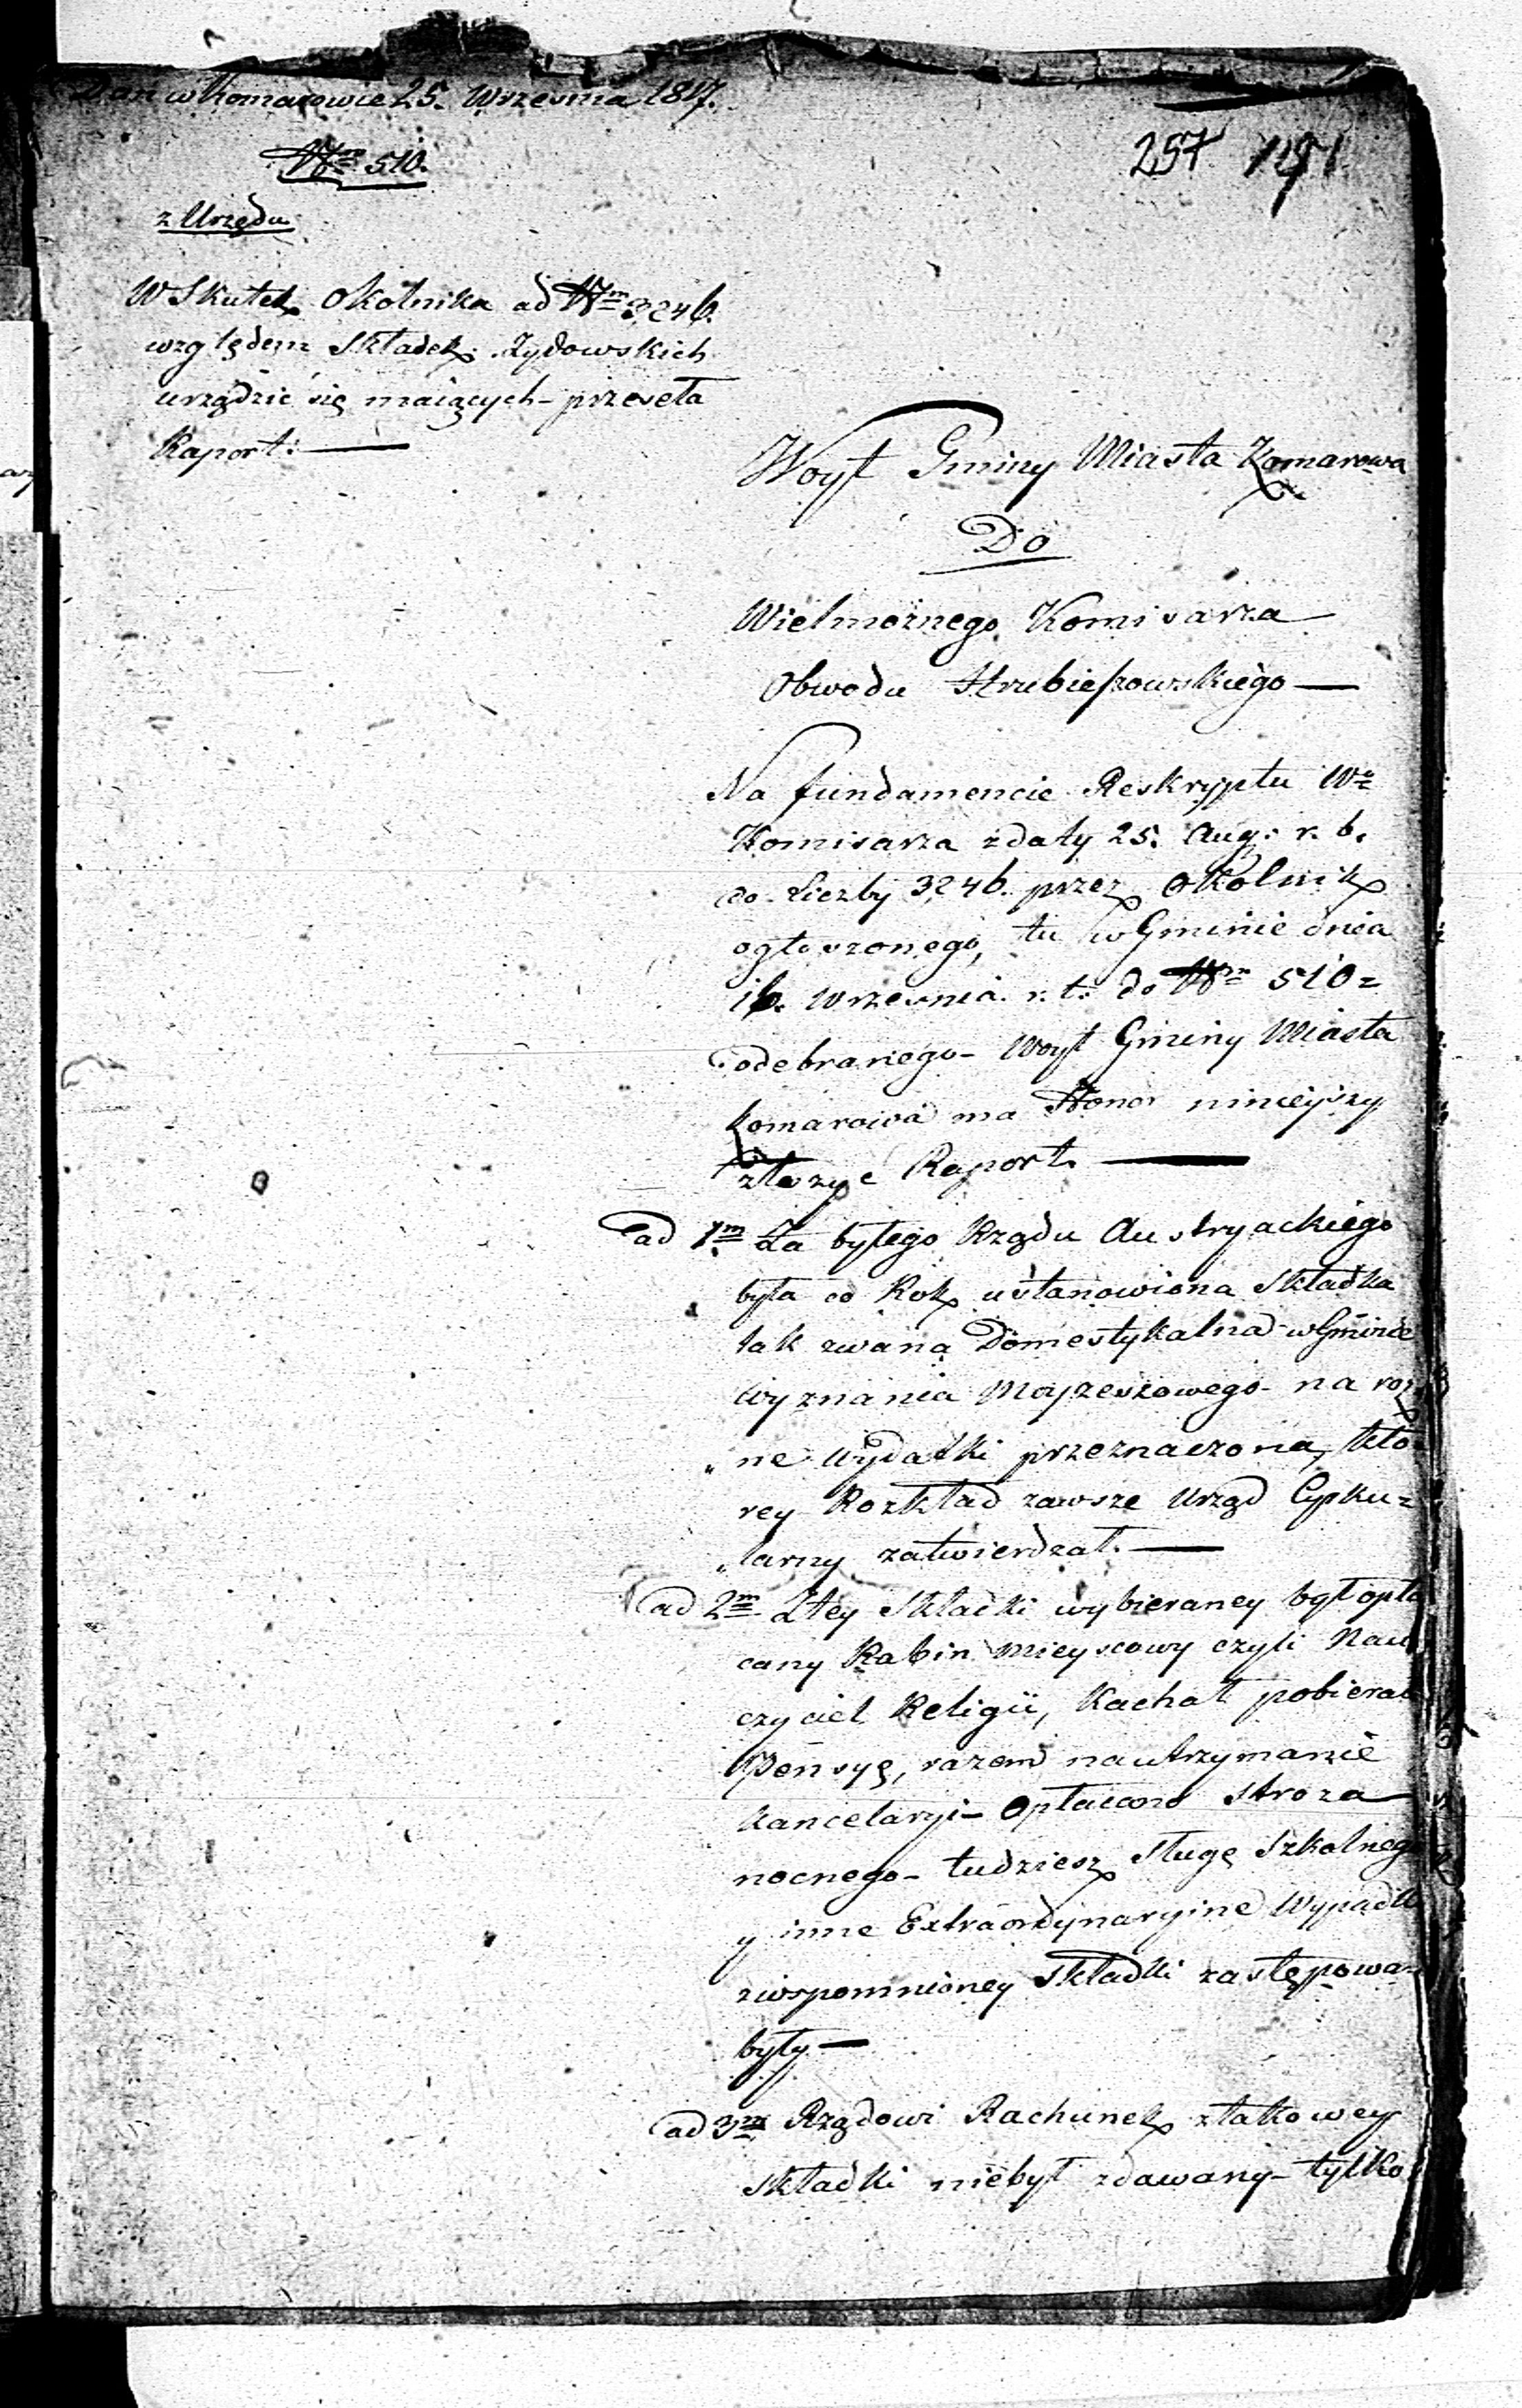 Dan w Komarowie 25. Wrzesnia 1817.
257
Nrm 510.
z Urzędu
W Skutek Okolnika ad Nrm 3246.
względem Składek Zydowskich
urządzic się maiących - przeseła
Raport: —
Woyt Gminy Miasta Komarowa
Do
Wielmoznego Komisarza
Obwodu Hrubieszowskiego —
Na fundamencie Reskryptu Wo
Komisarza z daty 25. Aug: r. b.
do Liczby 3246. przez Okolnik
ogłoszonego, tu w Gminie dnia
16. Wrzesnia r. t: do Nrm 510 =
odebranego - Woyt Gminy Miasta
Komarowa ma Honor ninieyszy
złozyc Raport. —
ad 1m Za byłego Rządu Austryackiego
była co Rok ustanowiona Składka
tak zwana Domestykalna w Gminie
Wyznania Moyzeszowego - na roz
„ne wydatki przeznaczona, kto
rey Rozkład zawsze Urząd Cyrku=
„larny zatwierdzał. —
ad 2m Z tey Składki wybieraney był opła
cany Rabin mieyscowy czyli Nau
czyciel Religii, Kachał pobierał
Pensyę, razem na utrzymanie
Kancelaryi - Opłacono stroza
nocnego - tudziesz Sługę Szkolnego
y inne Extraordynaryine Wypadki
z wspomnioney Składki zastępowa=
były —
ad 3m Rządowi Rachunek z takowey
składki niebył zdawany - tylko